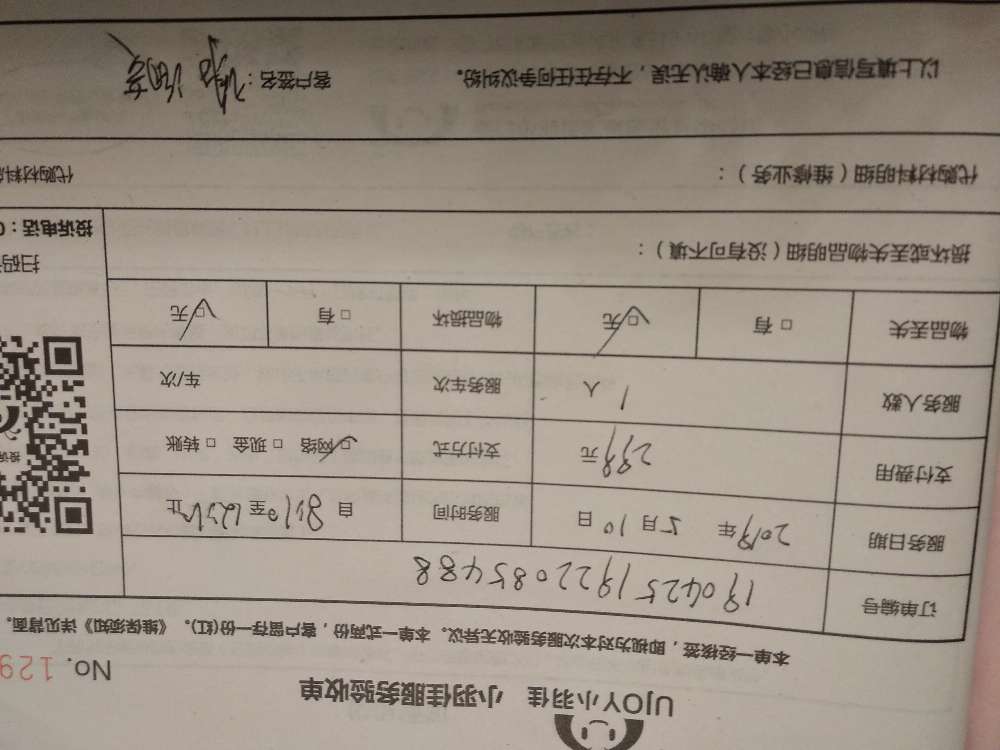 UJOY小羽佳 小羽佳服务验收单
No. 129
本单一经核签，即视为对本次服务验收无异议。本单一式两份，客户留存一份(红)。《维保须知》详见背面。
订单编号 190425192208548 8
服务日期 2019年 5月 10日 服务时间 自 8:10至 12:10止
支付费用 299元 支付方式 □网络 □现金 □转账
服务人数 1人 服务车次 车/次
物品丢失 □有 □无 物品损坏 □有 □无
损坏或丢失物品明细（没有可不填）：
扫码
投诉电话：0
代购材料明细（维修业务）：
代购材料
以上填写信息已经本人确认无误，不存在任何争议纠纷。 客户签名：